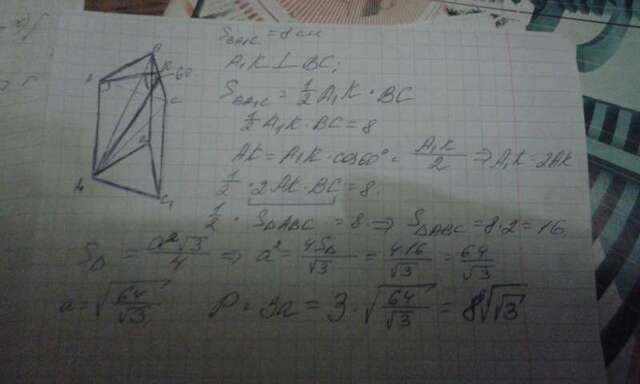 S_BA₁C = 8 см
A₁K ⊥ BC;
S_BA₁C = 1/2 A₁K · BC
1/2 A₁K · BC = 8
AK = A₁K · cos60° = A₁K/2 ⇒ A₁K = 2AK
1/2 · 2AK · BC = 8.
1/2 · S_ΔABC = 8 ⇒ S_ΔABC = 8 · 2 = 16,
S_Δ = a²√3/4 ⇒ a² = 4S_Δ/√3 = 4·16/√3 = 64/√3
a = √(64/√3) P = 3a = 3 · √(64/√3) = 8√(√3)
B
A
K
60
C
A₁
C₁